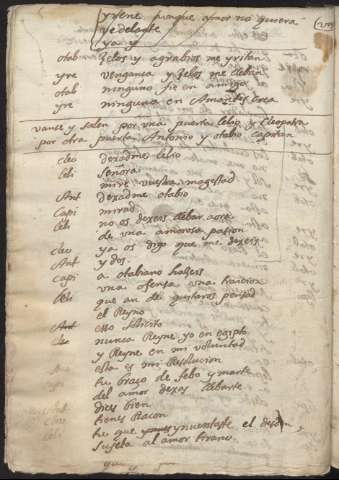 yrene porque amor no quiera
ve delante
ya y
otab Zelos y agrabios me yrritan
yre vengansa y zelos me
otab ninguno fie en amigo
yre ninguna en Amantes crea
vanse y salen por vna puerta lelio y Cleopatra
por otra puerta Antonio y otabio capitan
cleo dexadme lelio
leli señora
mire vuestra magestad
Ant dexadme otabio
Capi mirad
leli no os dexeis llebar aora
de vna amorosa pasion
cleo ya os digo que me dexeis
Ant y dos
capi a otabiano hazeis
vna ofensa vna traicion
leli que an de gustaros
el Reyno
Ant esso solicito
cleo nunca Reyne yo en egipto
y Reyne en mi voluntad
esta es mi Resolucion
tu brazo de febo y marte
del amor dexas llebarte
dices bien
tienes Racon
tu que ynventaste el
sujeta al amor tirano